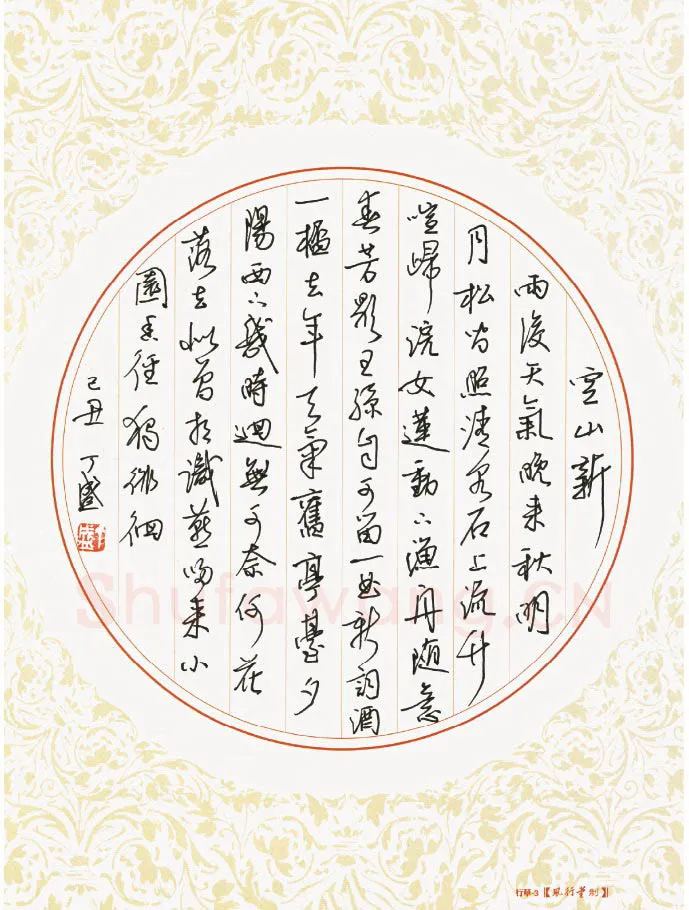 空山新
雨後天氣晚来秋明
月松间照清泉石上流竹
喧歸浣女蓮動下漁舟随意
春芳歇王孫自可留一曲新詞酒
一杯去年天氣舊亭臺夕
陽西下幾時迴無可奈何花
落去似曾相識燕归来小
園香径獨徘徊
己丑 丁盛
Shufawang.CN